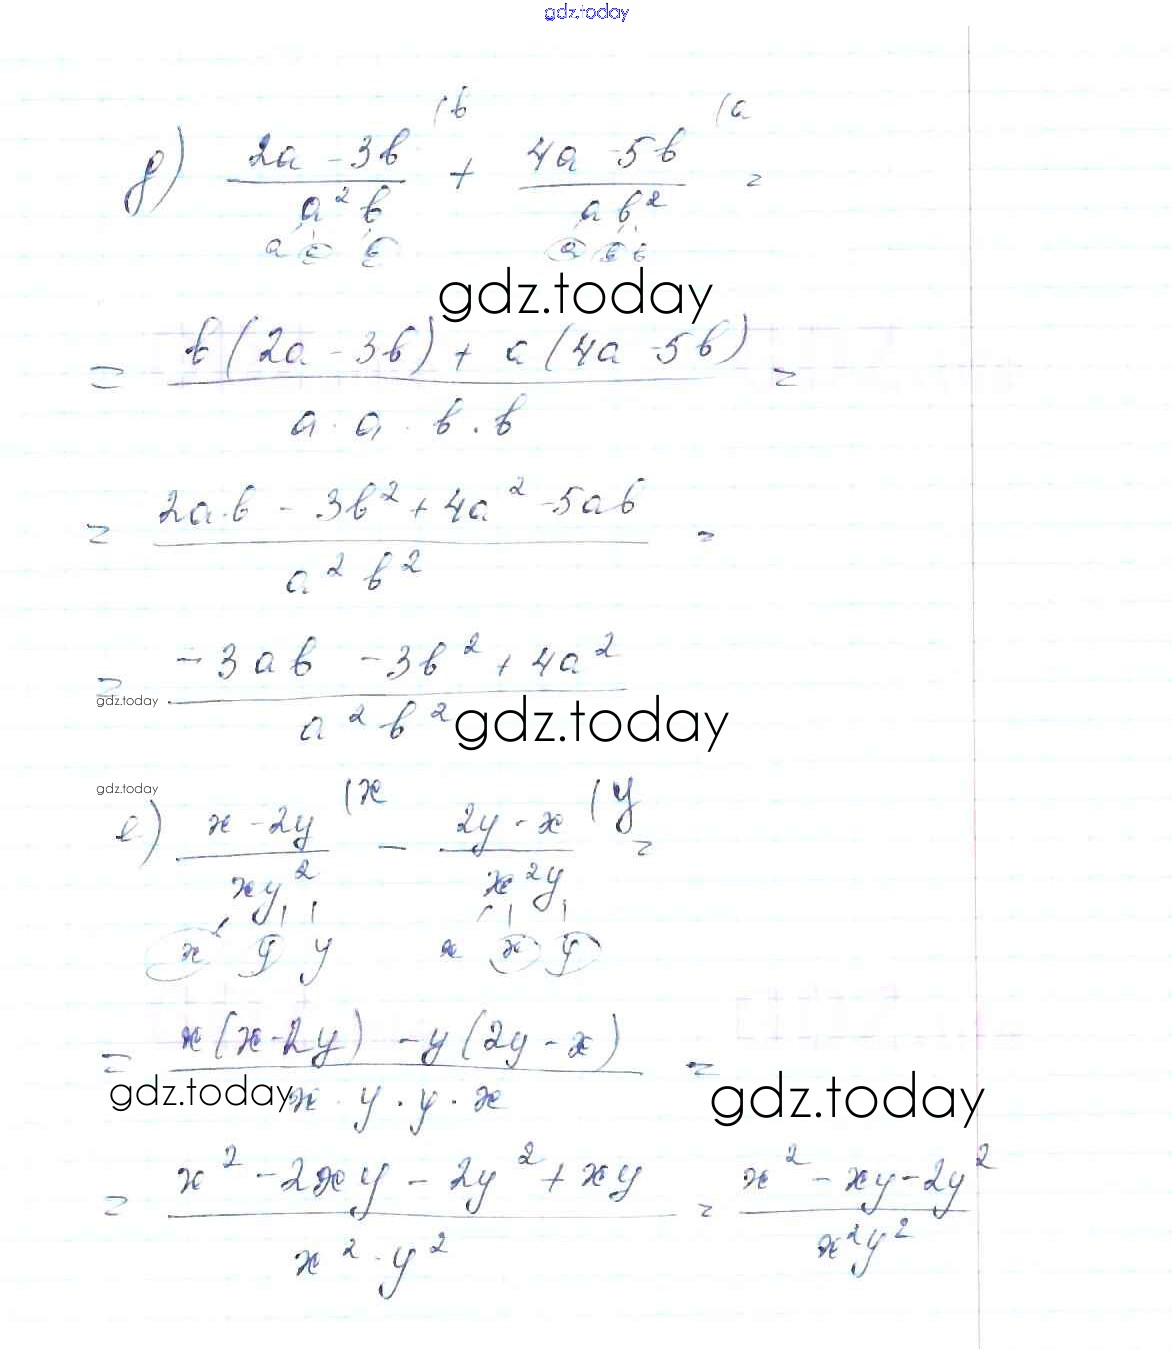 gdz.today
д) (2a - 3b)/(a²b) (b + (4a - 5b)/(ab²) (a =
a a b a b b
gdz.today
= (b(2a - 3b) + a(4a - 5b))/(a · a · b · b) =
= (2a·b - 3b² + 4a² - 5ab)/(a² b²) =
= (-3ab - 3b² + 4a²)/(a² b²)
gdz.today gdz.today
gdz.today
е) (x - 2y)/(xy²) (x - (2y - x)/(x²y) (y =
x y y x x y
= (x(x - 2y) - y(2y - x))/(x · y · y · x) =
gdz.today gdz.today
= (x² - 2xy - 2y² + xy)/(x² · y²) = (x² - xy - 2y²)/(x²y²)